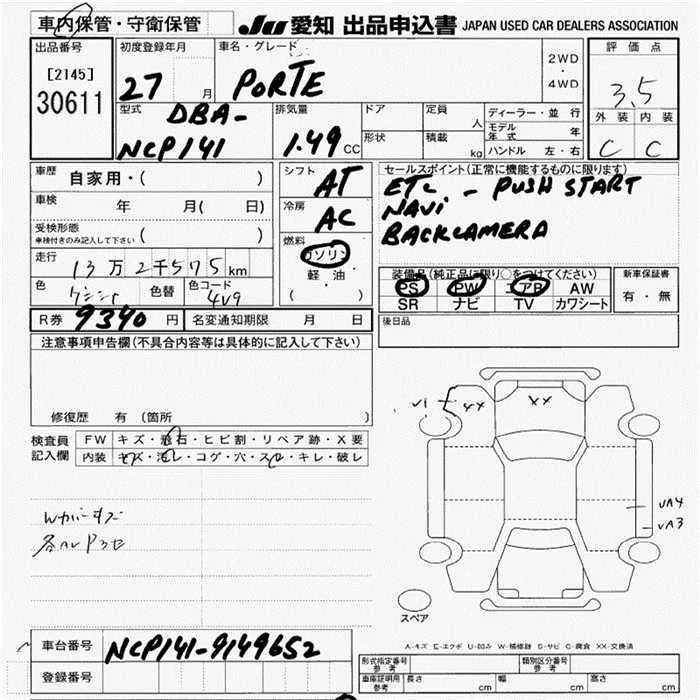 車内保管・守衛保管 JU 愛知 出品申込書 JAPAN USED CAR DEALERS ASSOCIATION
出品番号 初度登録年月 車名・グレード 2WD・4WD 評価点
[2145] 30611 27 月 PORTE 3.5
型式 DBA-NCP141 排気量 1.49 CC ドア 形状 定員 人 積載 kg ディーラー・並行 モデル年式 年 ハンドル 左・右 外装 内装
C C
車歴 自家用・( ) シフト AT セールスポイント(正常に機能するものに限ります)
車検 年 月( 日) 冷房 AC ETC - PUSH START
NAVI
受検形態 車検付きのみ記入して下さい ( ) 燃料 ガソリン BACKCAMERA
走行 13万2千575km 軽・油 ( )
装備品(純正品に限り○をつけてください) 新車保証書
色 色替 色コード 4V9 PS PW エアB AW 有・無
SR ナビ TV カワシート
R券 9340 円 名変通知期限 月 日 後日品
注意事項申告欄(不具合内容等は具体的に記入して下さい)
修復歴 有 (箇所
検査員記入欄 FW キズ・飛石・ヒビ割・リペア跡・X要
内装 キズ・汚レ・コゲ・穴・スレ・キレ・破レ
U1 XX XX
UA4
UA3
スペア
A-キズ E-エクボ U-凹み W-補修跡 S-サビ C-腐食 XX-交換済
車台番号 NCP141-9149652
登録番号
形式指定番号 参考 類別区分番号 参考
車庫証明用 参考 長さ cm 幅 cm 高さ cm